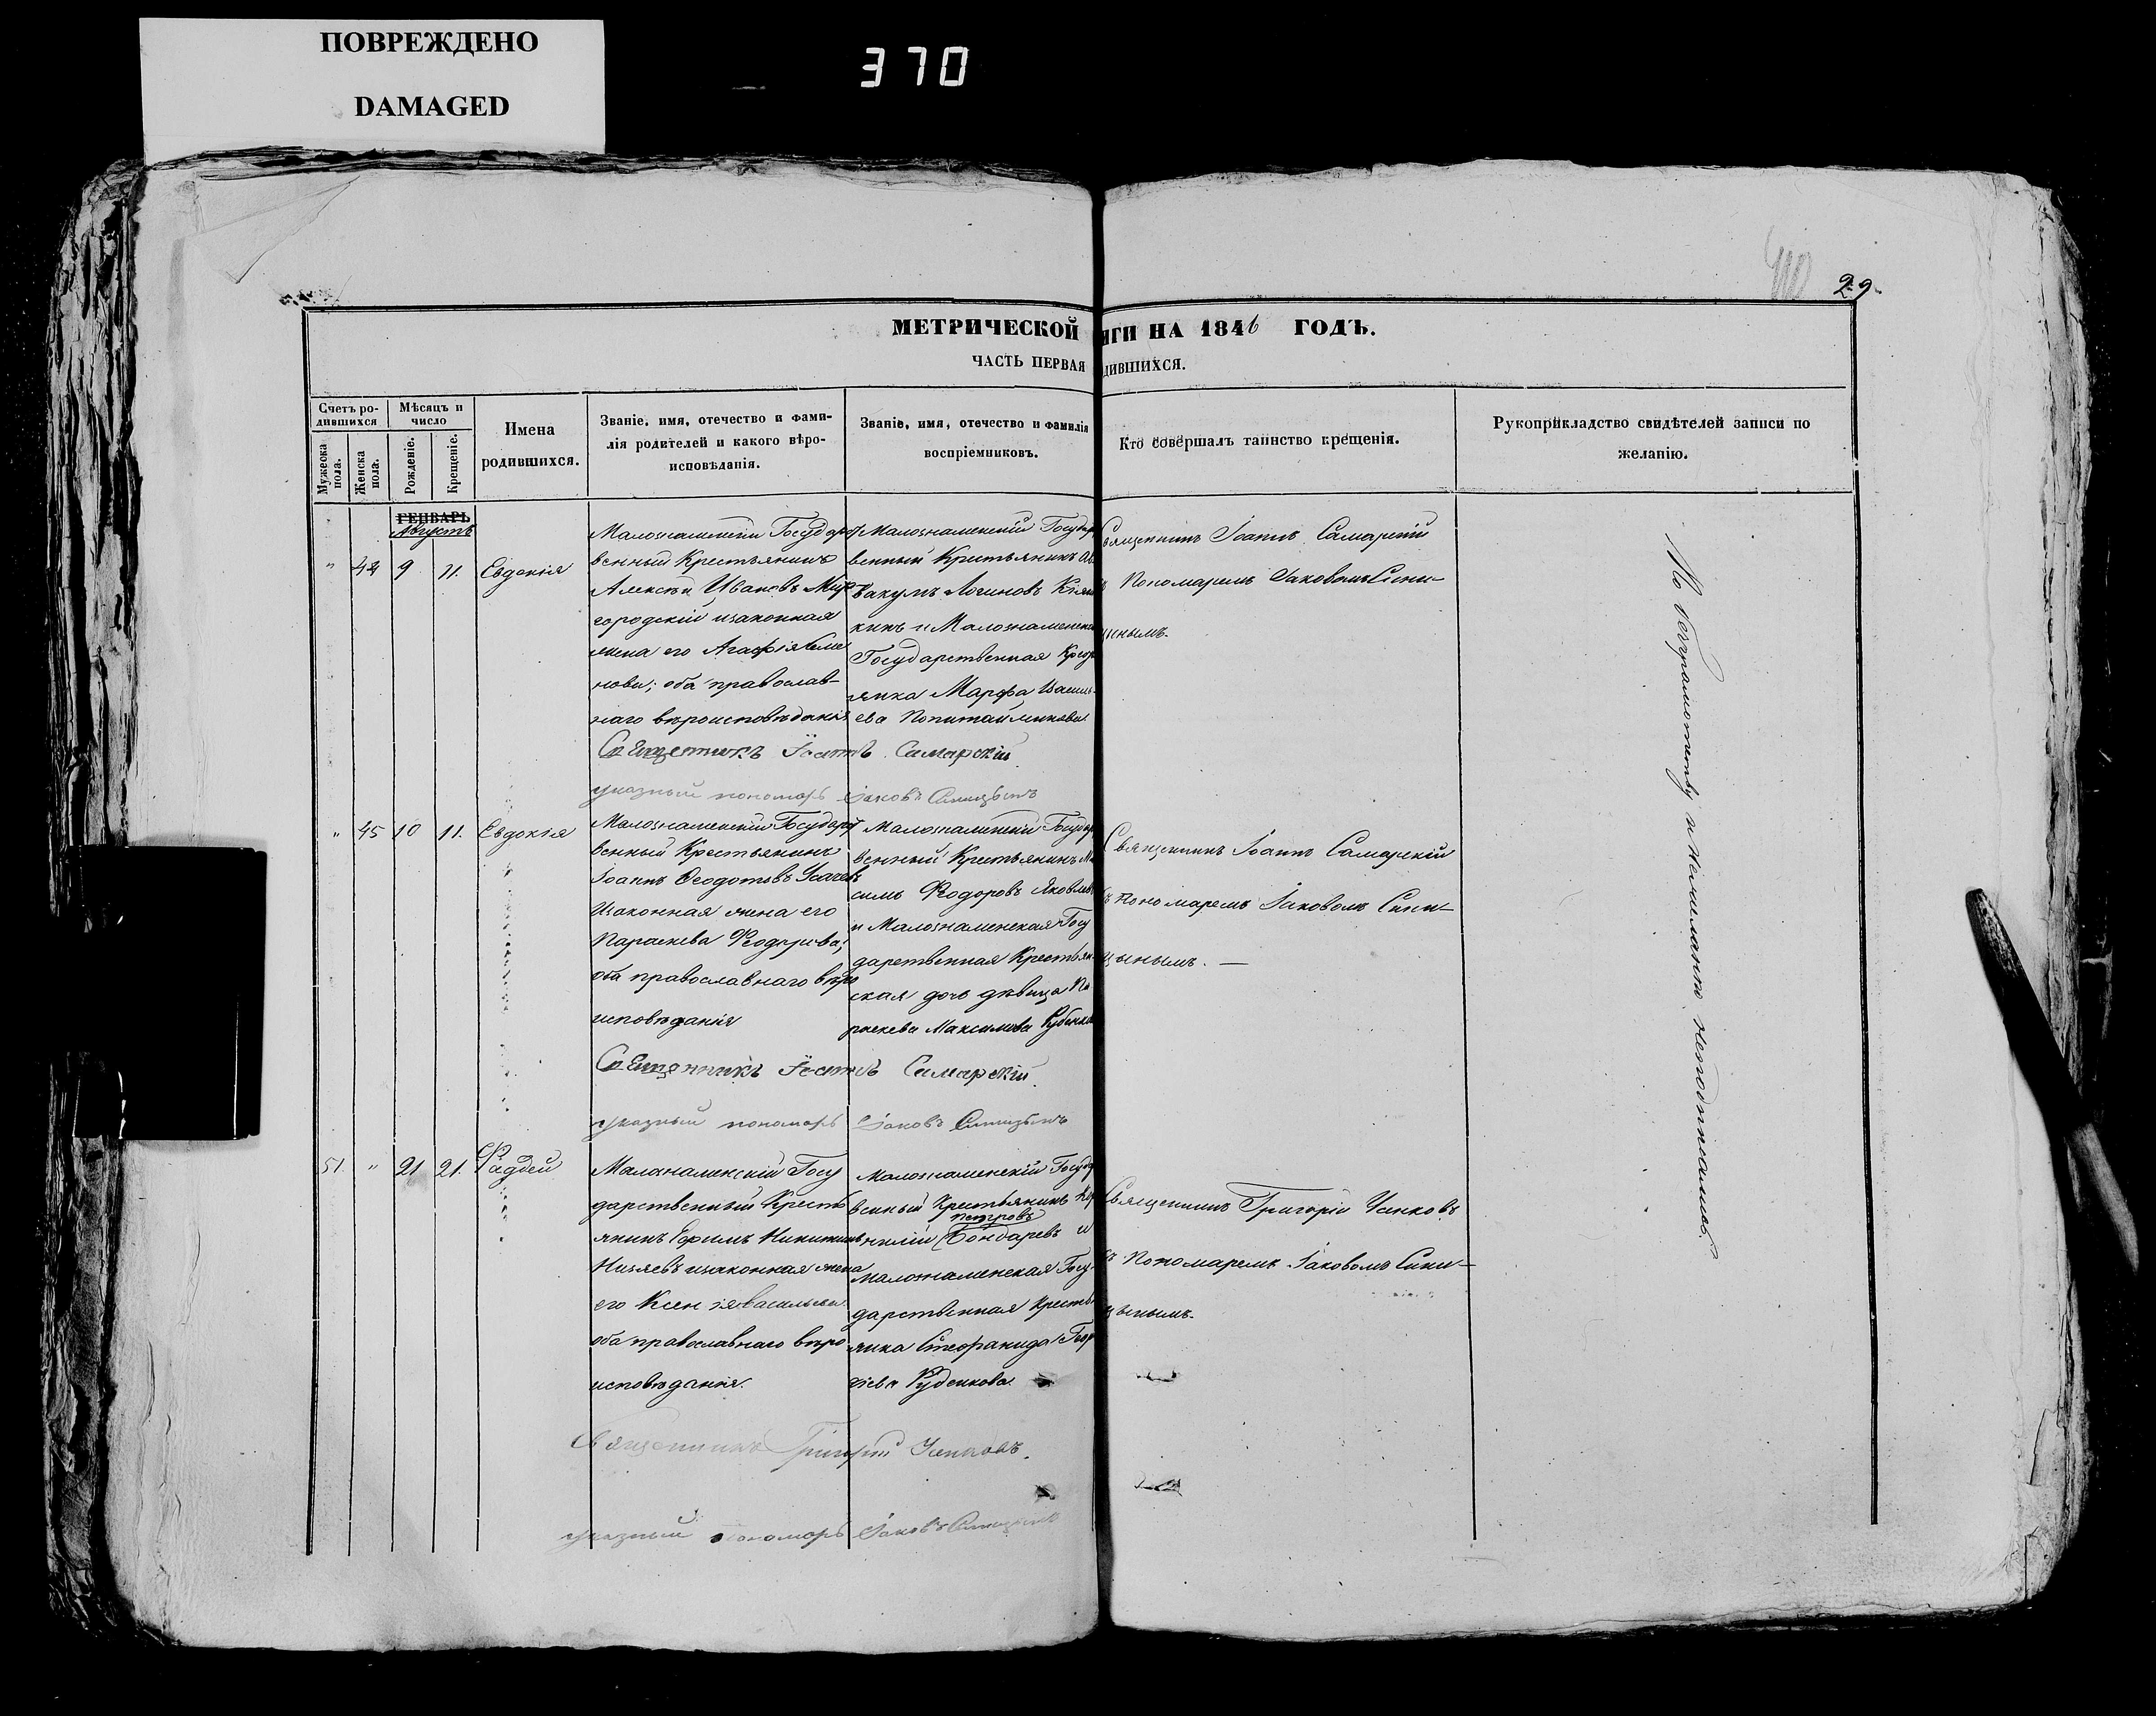 ПОВРЕЖДЕНО
DAMAGED
370
29
МЕТРИЧЕСКОЙ
ИГИ НА 1846 ГОДЪ.
ЧАСТЬ ПЕРВАЯ
ДИВШИХСЯ.
Счетъ ро-
дившихся
Мужеска
пола.
Женска
пола.
Мѣсяцъ и
число
Рожденіе.
Крещеніе.
Имена
родившихся.
Званіе, имя, отечество и фами-
лія родителей и какого вѣро-
исповѣданія.
Званіе, имя, отечество и фамилія
воспріемниковъ.
Кто совершалъ таинство крещенія.
Рукоприкладство свидѣтелей записи по
желанію.
ГЕНВАРЬ
Августъ
" 44 9 11. Евдокія
Малознаменскій Государст
венный Крестьянинъ
Алексѣй Ивановъ Мир
городскій изаконная
жена его Агафія Семе
нова; оба православ-
наго вѣроисповѣданія
Малознаменскій Государ
венный Крестьянинъ Ав
вакумъ Логиновъ
кинъ и Малознаменская
Государственная Крест
янка Марфа Василь-
ева
Священникъ Іоаннъ Самарскій
Пономаремъ Іаковомъ Сини-
цынымъ.
Священникъ Іоаннъ Самарскій
указный пономарь Іаковъ Синицынъ
" 45 10 11. Евдокія
Малознаменскій Государст
венный Крестьянинъ
Іоаннъ Ѳеодотовъ Усачевъ
Изаконная жена его
Параскева Ѳеодорова;
оба православнаго вѣро
исповѣданія
Малознаменскій Государ
венный Крестьянинъ Ма
симъ Ѳеодоровъ Яковлев
и Малознаменская Госу
дарственная Крестьян
ская дочь дѣвица Па
раскева Максимова Рубенко
Священникъ Іоаннъ Самарскій
съ Пономаремъ Іаковомъ Сини-
цынымъ. —
Священникъ Іоаннъ Самарскій
указный пономарь Іаковъ Синицынъ
51 " 21 21. Фаддей
Малознаменскій Госу
дарственный Кресть
янинъ Ефимъ Никитинъ
Низяевъ изаконная жена
его Ксенія Васильева
оба православнаго вѣро
исповѣданія.
Малознаменскій Государ
венный Крестьянинъ Кор
петровъ
нилій Бондаревъ и
малознаменская Госу
дарственная Кресть
янка Стефанида Геор
гіева Руденкова
Священникъ Григорій Усенковъ
съ Пономаремъ Іаковомъ Сини-
цынымъ.
Священникъ Григорій Усенковъ.
указный пономарь Іаковъ Синицынъ
По безграмотству и нежеланію неподписались.